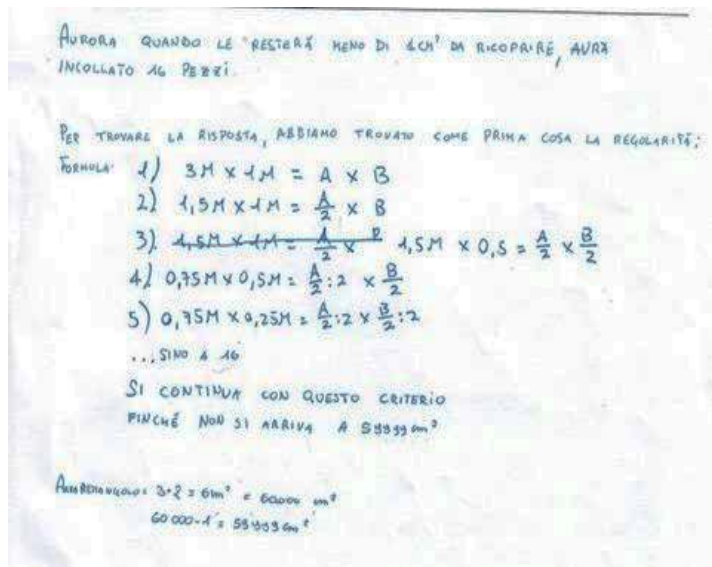 AURORA QUANDO LE RESTERÀ MENO DI 1CM² DA RICOPRIRE, AVRÀ
INCOLLATO 16 PEZZI.
PER TROVARE LA RISPOSTA, ABBIAMO TROVATO COME PRIMA COSA LA REGOLARITÀ;
FORMULA: 1) 3M x 1M = A x B
2) 1,5M x 1M = A/2 x B
3) 1,5M x 1M = A/2 x B 1,5M x 0,5 = A/2 x B/2
4) 0,75M x 0,5M = A/2 : 2 x B/2
5) 0,75M x 0,25M = A/2 : 2 x B/2 : 2
..., SINO A 16
SI CONTINUA CON QUESTO CRITERIO
FINCHÉ NON SI ARRIVA A 59999 cm²
3•2 = 6m² = 60000 cm²
60 000-1 = 59 999 cm²